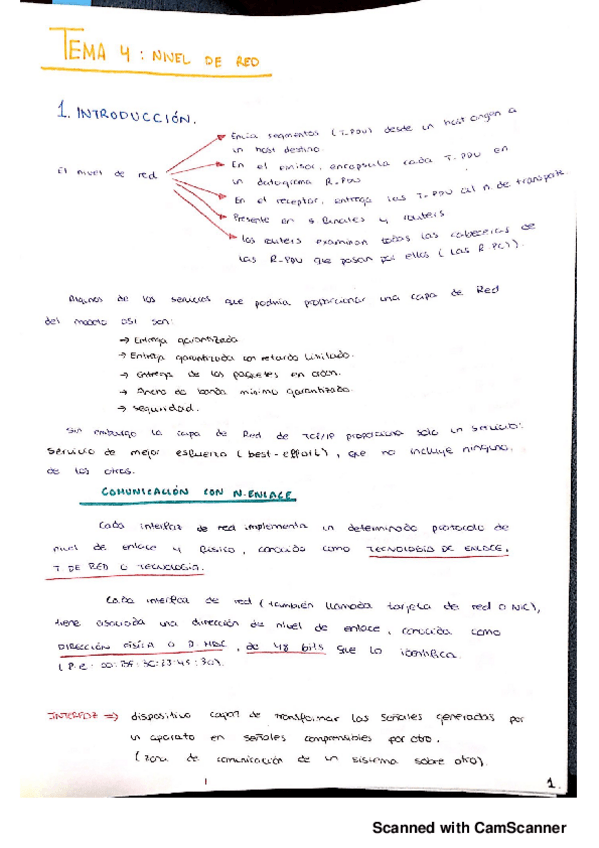 TEMA 4: NIVEL DE RED
1. INTRODUCCIÓN.
El nivel de red
Envía segmentos (T_PDU) desde un host origen a
un host destino.
En el emisor, encapsula cada T_PDU en
un datagrama R_PDU
En el receptor, entrega las T_PDU al n. de transporte.
Presente en s. finales y routers
Los routers examinan todas las cabeceras de
las R_PDU que pasan por ellos (las R_PCI).
Algunos de los servicios que podría proporcionar una capa de Red
del modelo OSI son:
→ Entrega garantizada
→ Entrega garantizada con retardo limitado.
→ Entrega de los paquetes en orden.
→ Ancho de banda mínimo garantizado
→ seguridad.
Sin embargo la capa de Red de TCP/IP proporciona solo un servicio:
servicio de mejor esfuerzo (best-effort), que no incluye ninguno
de los otros.
COMUNICACIÓN CON N.ENLACE
Cada interfaz de red implementa un determinado protocolo de
nivel de enlace y físico, conocido como TECNOLOGÍA DE ENLACE,
T. DE RED O TECNOLOGÍA.
Cada interfaz de red (también llamada tarjeta de red o NIC),
tiene asociada una dirección de nivel de enlace, conocida como
DIRECCIÓN FÍSICA O D. MAC, de 48 bits que lo identifica
INTERFAZ => dispositivo capaz de transformar las señales generadas por
un aparato en señales comprensibles por otro.
(zona de comunicación de un sistema sobre otro).
1.
Scanned with CamScanner